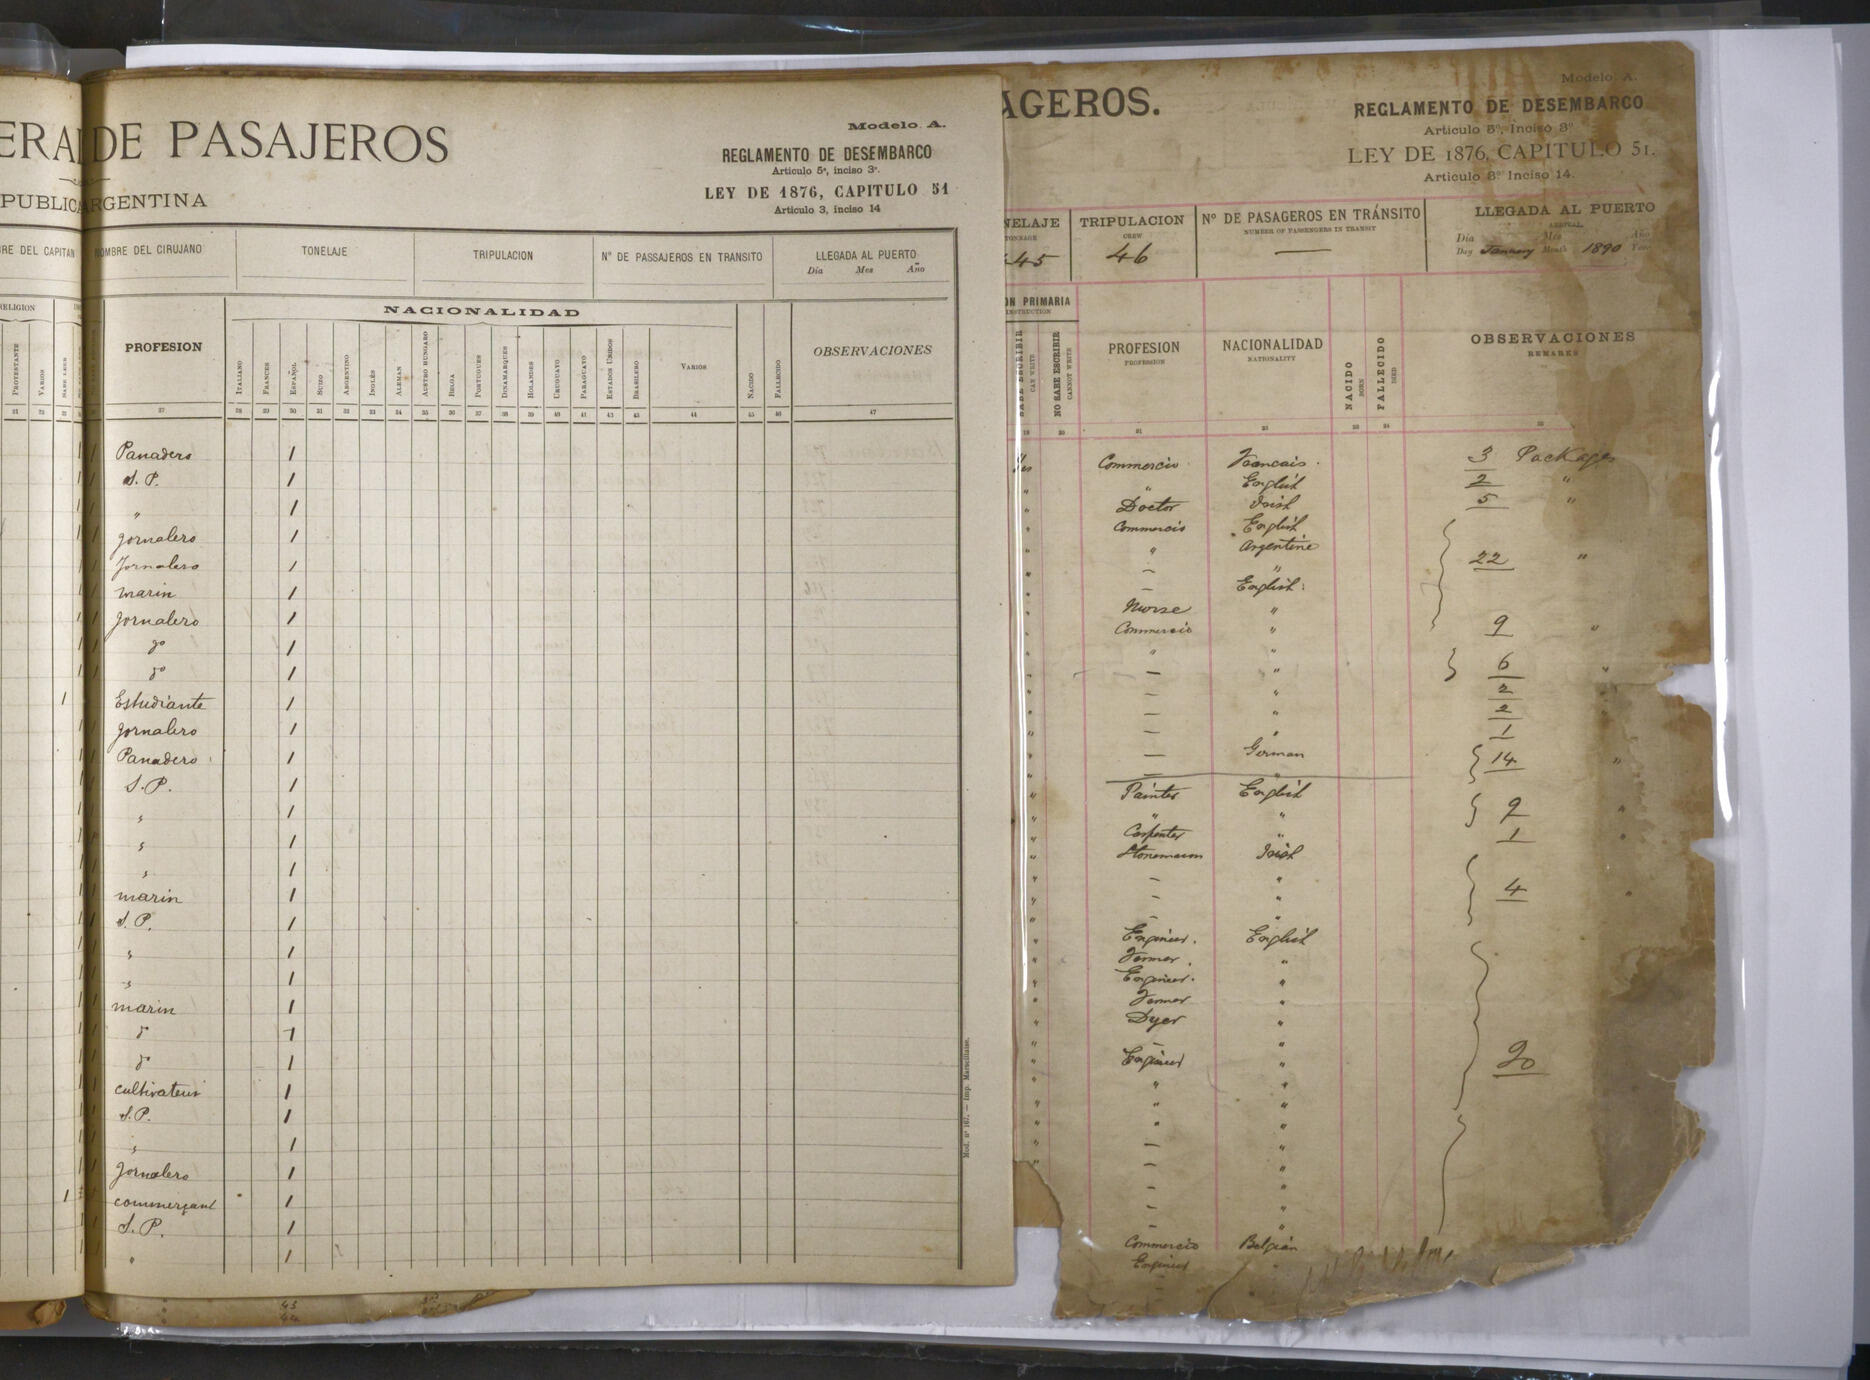 ERAL DE PASAJEROS
PUBLICA ARGENTINA
Modelo A.
REGLAMENTO DE DESEMBARCO
Articulo 5º, inciso 3º.
LEY DE 1876, CAPITULO 51
Articulo 3, inciso 14
RE DEL CAPITAN
NOMBRE DEL CIRUJANO
TONELAJE
TRIPULACION
Nº DE PASSAJEROS EN TRANSITO
LLEGADA AL PUERTO
Día Mes Año
RELIGION
PROTESTANTE
VARIOS
SABE LEER
PROFESION
NACIONALIDAD
ITALIANO
FRANCES
ESPAÑOL
SUIZO
ARGENTINO
INGLÉS
ALEMAN
AUSTRO HUNGARO
BELGA
PORTUGUES
DINAMARQUES
HOLANDES
URUGUAYO
PARAGUAYO
ESTADOS UNIDOS
BRASILERO
VARIOS
NACIDO
FALLECIDO
OBSERVACIONES
21 22 23 27 28 29 30 31 32 33 34 35 36 37 38 39 40 41 42 43 44 45 46 47
Panadero 1
S. P. 1
" 1
Jornalero 1
Jornalero 1
marin 1
Jornalero 1
dº 1
dº 1
1 Estudiante 1
Jornalero 1
Panadero 1
S.P. 1
" 1
" 1
" 1
marin 1
S. P. 1
" 1
" 1
marin 1
dº 1
dº 1
cultivateur 1
S.P. 1
" 1
Jornalero 1
1 commerçant 1
S.P. 1
" 1
Mod. nº 167. — Imp. Marseillaise.
43
44
AGEROS.
Modelo A.
REGLAMENTO DE DESEMBARCO
Articulo 5º, Inciso 3º
LEY DE 1876, CAPITULO 51.
Articulo 3º Inciso 14.
NELAJE
TONNAGE
45
TRIPULACION
CREW
46
Nº DE PASAGEROS EN TRÁNSITO
NUMBER OF PASSENGERS IN TRANSIT
—
LLEGADA AL PUERTO
ARRIVAL
Dia Mes Año
Day January Month 1890 Year
ON PRIMARIA
INSTRUCTION
SABE ESCRIBIR
CAN WRITE
NO SABE ESCRIBIR
CANNOT WRITE
PROFESION
PROFESSION
NACIONALIDAD
NATIONALITY
NACIDO
BORN
FALLECIDO
DIED
OBSERVACIONES
REMARKS
19 20 21 22 23 24 25
Yes Commercio Francais 3 Packages
" " English 2 "
" Doctor Irish 5 "
" Commercio English
" " Argentine 22 "
" — "
" — English
" Nurse "
" Commercio " 9 "
" " "
" — " 6 "
" — " 2
" — " 2
" — " 1
" — German 14 "
" — "
" Painter English
" " " 9 "
" Carpenter " 1 "
" Stonemason Irish
" — " 4 "
" — "
" — "
" Engineer. English
" Farmer. "
" Engineer. "
" Farmer "
" Dyer "
" — "
" Engineer " 20
" " "
" " "
" " "
" — "
" — "
— "
— "
— "
Commercio Belgian
Engineer "